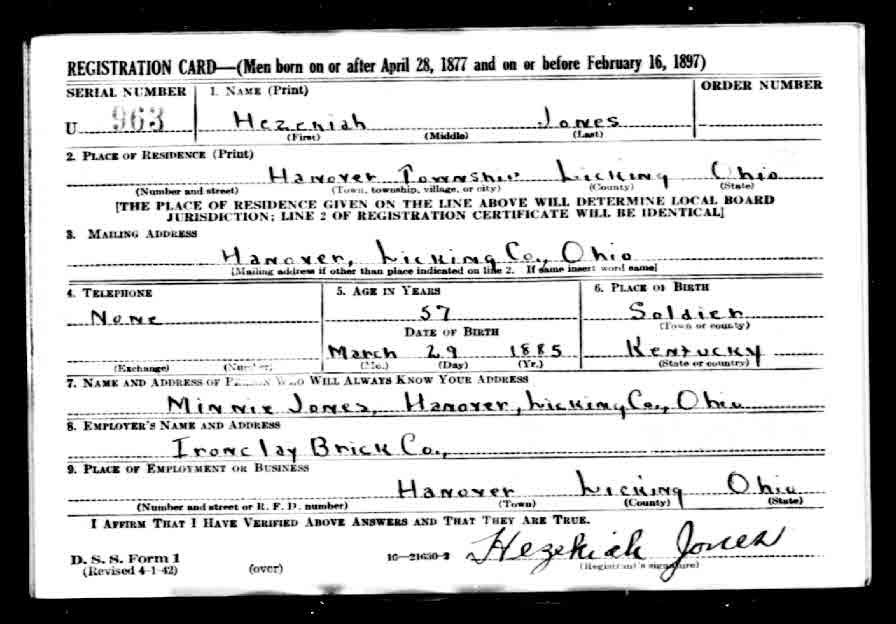 REGISTRATION CARD—(Men born on or after April 28, 1877 and on or before February 16, 1897)
SERIAL NUMBER 1. NAME (Print) ORDER NUMBER
U 963 Hezekiah Jones
(First) (Middle) (Last)
2. PLACE OF RESIDENCE (Print)
Hanover Township Licking Ohio
(Number and street) (Town, township, village, or city) (County) (State)
[THE PLACE OF RESIDENCE GIVEN ON THE LINE ABOVE WILL DETERMINE LOCAL BOARD
JURISDICTION; LINE 2 OF REGISTRATION CERTIFICATE WILL BE IDENTICAL]
3. MAILING ADDRESS
Hanover, Licking Co., Ohio
[Mailing address if other than place indicated on line 2. If same insert word same]
4. TELEPHONE 5. AGE IN YEARS 6. PLACE OF BIRTH
None 57 Soldier
DATE OF BIRTH (Town or county)
March 29 1885 Kentucky
(Exchange) (Number) (Mo.) (Day) (Yr.) (State or country)
7. NAME AND ADDRESS OF PERSON WHO WILL ALWAYS KNOW YOUR ADDRESS
Minnie Jones, Hanover, Licking Co., Ohio
8. EMPLOYER'S NAME AND ADDRESS
Ironclay Brick Co.,
9. PLACE OF EMPLOYMENT OR BUSINESS
Hanover Licking Ohio
(Number and street or R. F. D. number) (Town) (County) (State)
I AFFIRM THAT I HAVE VERIFIED ABOVE ANSWERS AND THAT THEY ARE TRUE.
D. S. S. Form 1 16—21630-2 Hezekiah Jones
(Revised 4-1-42) (over) (Registrant's signature)